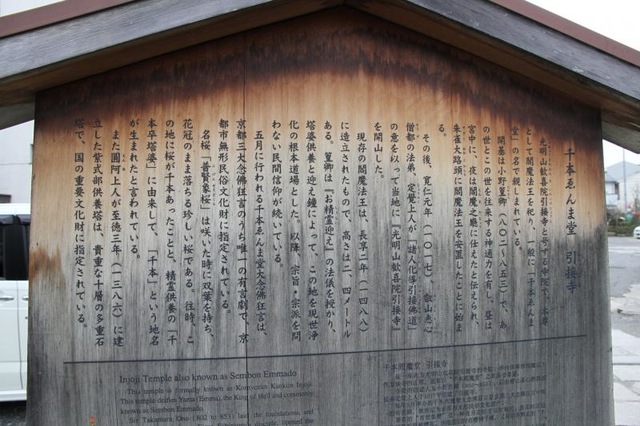 千本ゑんま堂 引接寺
光明山歓喜院引接寺と号する寺院で、本尊
として閻魔法王を祀り、一般に「千本ゑんま
堂」の名で親しまれている。
開基は小野篁卿(八〇二～八五三)で、あ
の世とこの世を往来する神通力を有し、昼は
宮中に、夜は閻魔之廳に仕えたと伝えられ、
朱雀大路頭に閻魔法王を安置したことに始ま
る。
その後、寛仁元年(一〇一七)、叡山恵心
僧都の法弟、定覚上人が「諸人化導引接佛道」
の意を以って当地に「光明山歓喜院引接寺」
を開山した。
現存の閻魔法王は、長享二年(一四八八)
に造立されたもので、高さは二、四メートル
ある。篁卿は『お精霊迎え』の法儀を授かり、
塔婆供養と迎え鐘によって、この地を現世浄
化の根本道場とした。以降、宗旨・宗派を問
わない民間信仰が続いている。
五月に行われる千本ゑんま堂大念佛狂言は、
京都三大念佛狂言のうち唯一の有言劇で、京
都市無形民俗文化財に指定されている。
名桜「普賢象桜」は咲いた時に双葉を持ち、
花冠のまま落ちる珍しい桜である。往時、こ
の地に桜が千本あったことと、精霊供養の「千
本卒塔婆」に由来して、「千本」という地名
が生まれたと言われている。
また圓阿上人が至徳三年(一三八六)に建
立した紫式部供養塔は、貴重な十層の多重石
塔で、国の重要文化財に指定されている。
Injoji Temple also known as Sembon Emmado
This temple is formally known as Komyozan Kankiin Injoji.
This temple deifies Yama (Emma), the King of Hell and commonly
known as Sembon Emmado.
Sir. Takamura Ono (802 to 853) laid the foundations, and
千本閻魔堂 引接寺